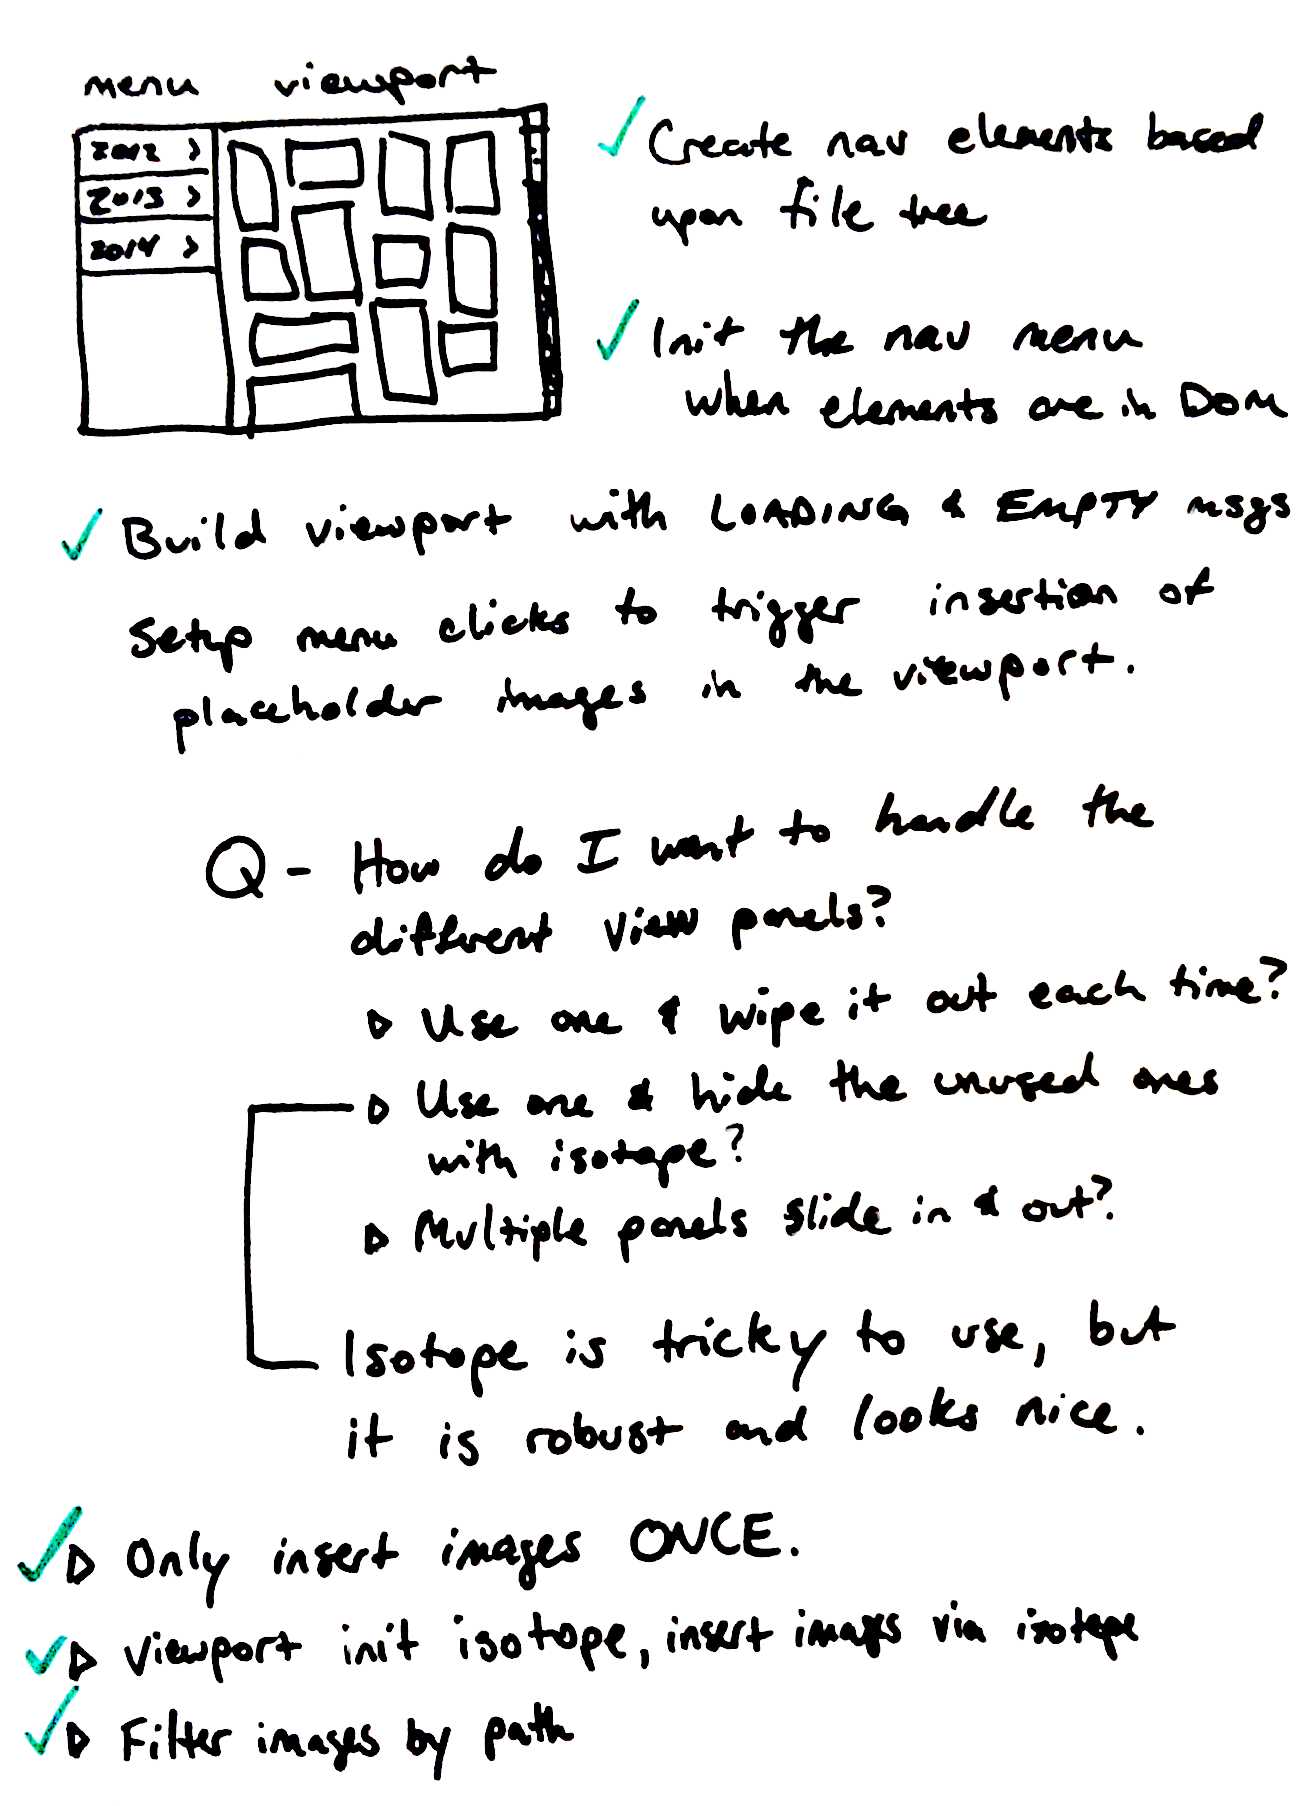 menu viewport
2012 >
2013 >
2014 >
Create nav elements based
upon file tree
Init the nav menu
when elements are in DOM
Build viewport with LOADING & EMPTY msgs
Setup menu clicks to trigger insertion of
placeholder images in the viewport.
Q - How do I want to handle the
different view panels?
Use one & wipe it out each time?
Use one & hide the unused ones
with isotope?
Multiple panels slide in & out?
Isotope is tricky to use, but
it is robust and looks nice.
Only insert images ONCE.
Viewport init isotope, insert images via isotope
Filter images by path